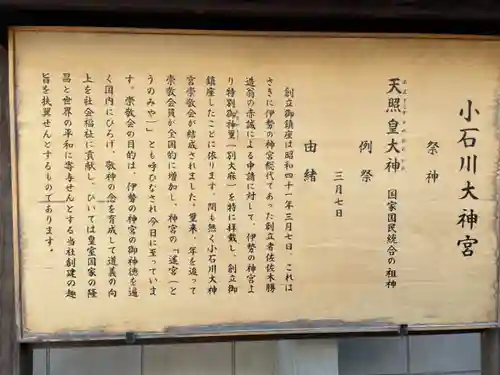 小石川大神宮
祭神
あまてらすすめおおかみ
天照皇大神　国家国民統合の祖神
例祭
三月七日
由緒
創立御鎮座は昭和四十一年三月七日、これは
さきに伊勢の神宮総代であった創立者佐佐木勝
造翁の赤誠による申請に対して、伊勢の神宮よ
り特別御神璽（別大麻）を特に拝戴し、創立御
鎮座したことに依ります。間も無く小石川大神
宮崇敬会が結成されました。爾来、年を追って
崇敬会員が全国的に増加し、神宮の「遥宮（と
うのみや）」とも呼びなされ今日に至っていま
す。崇敬会の目的は、伊勢の神宮の御神徳を遍
く国内にひろげ、敬神の念を育成して道義の向
上を社会福祉に貢献し、ひいては皇室国家の隆
昌と世界の平和に寄与せんとする当社創建の趣
旨を扶翼せんとするものであります。